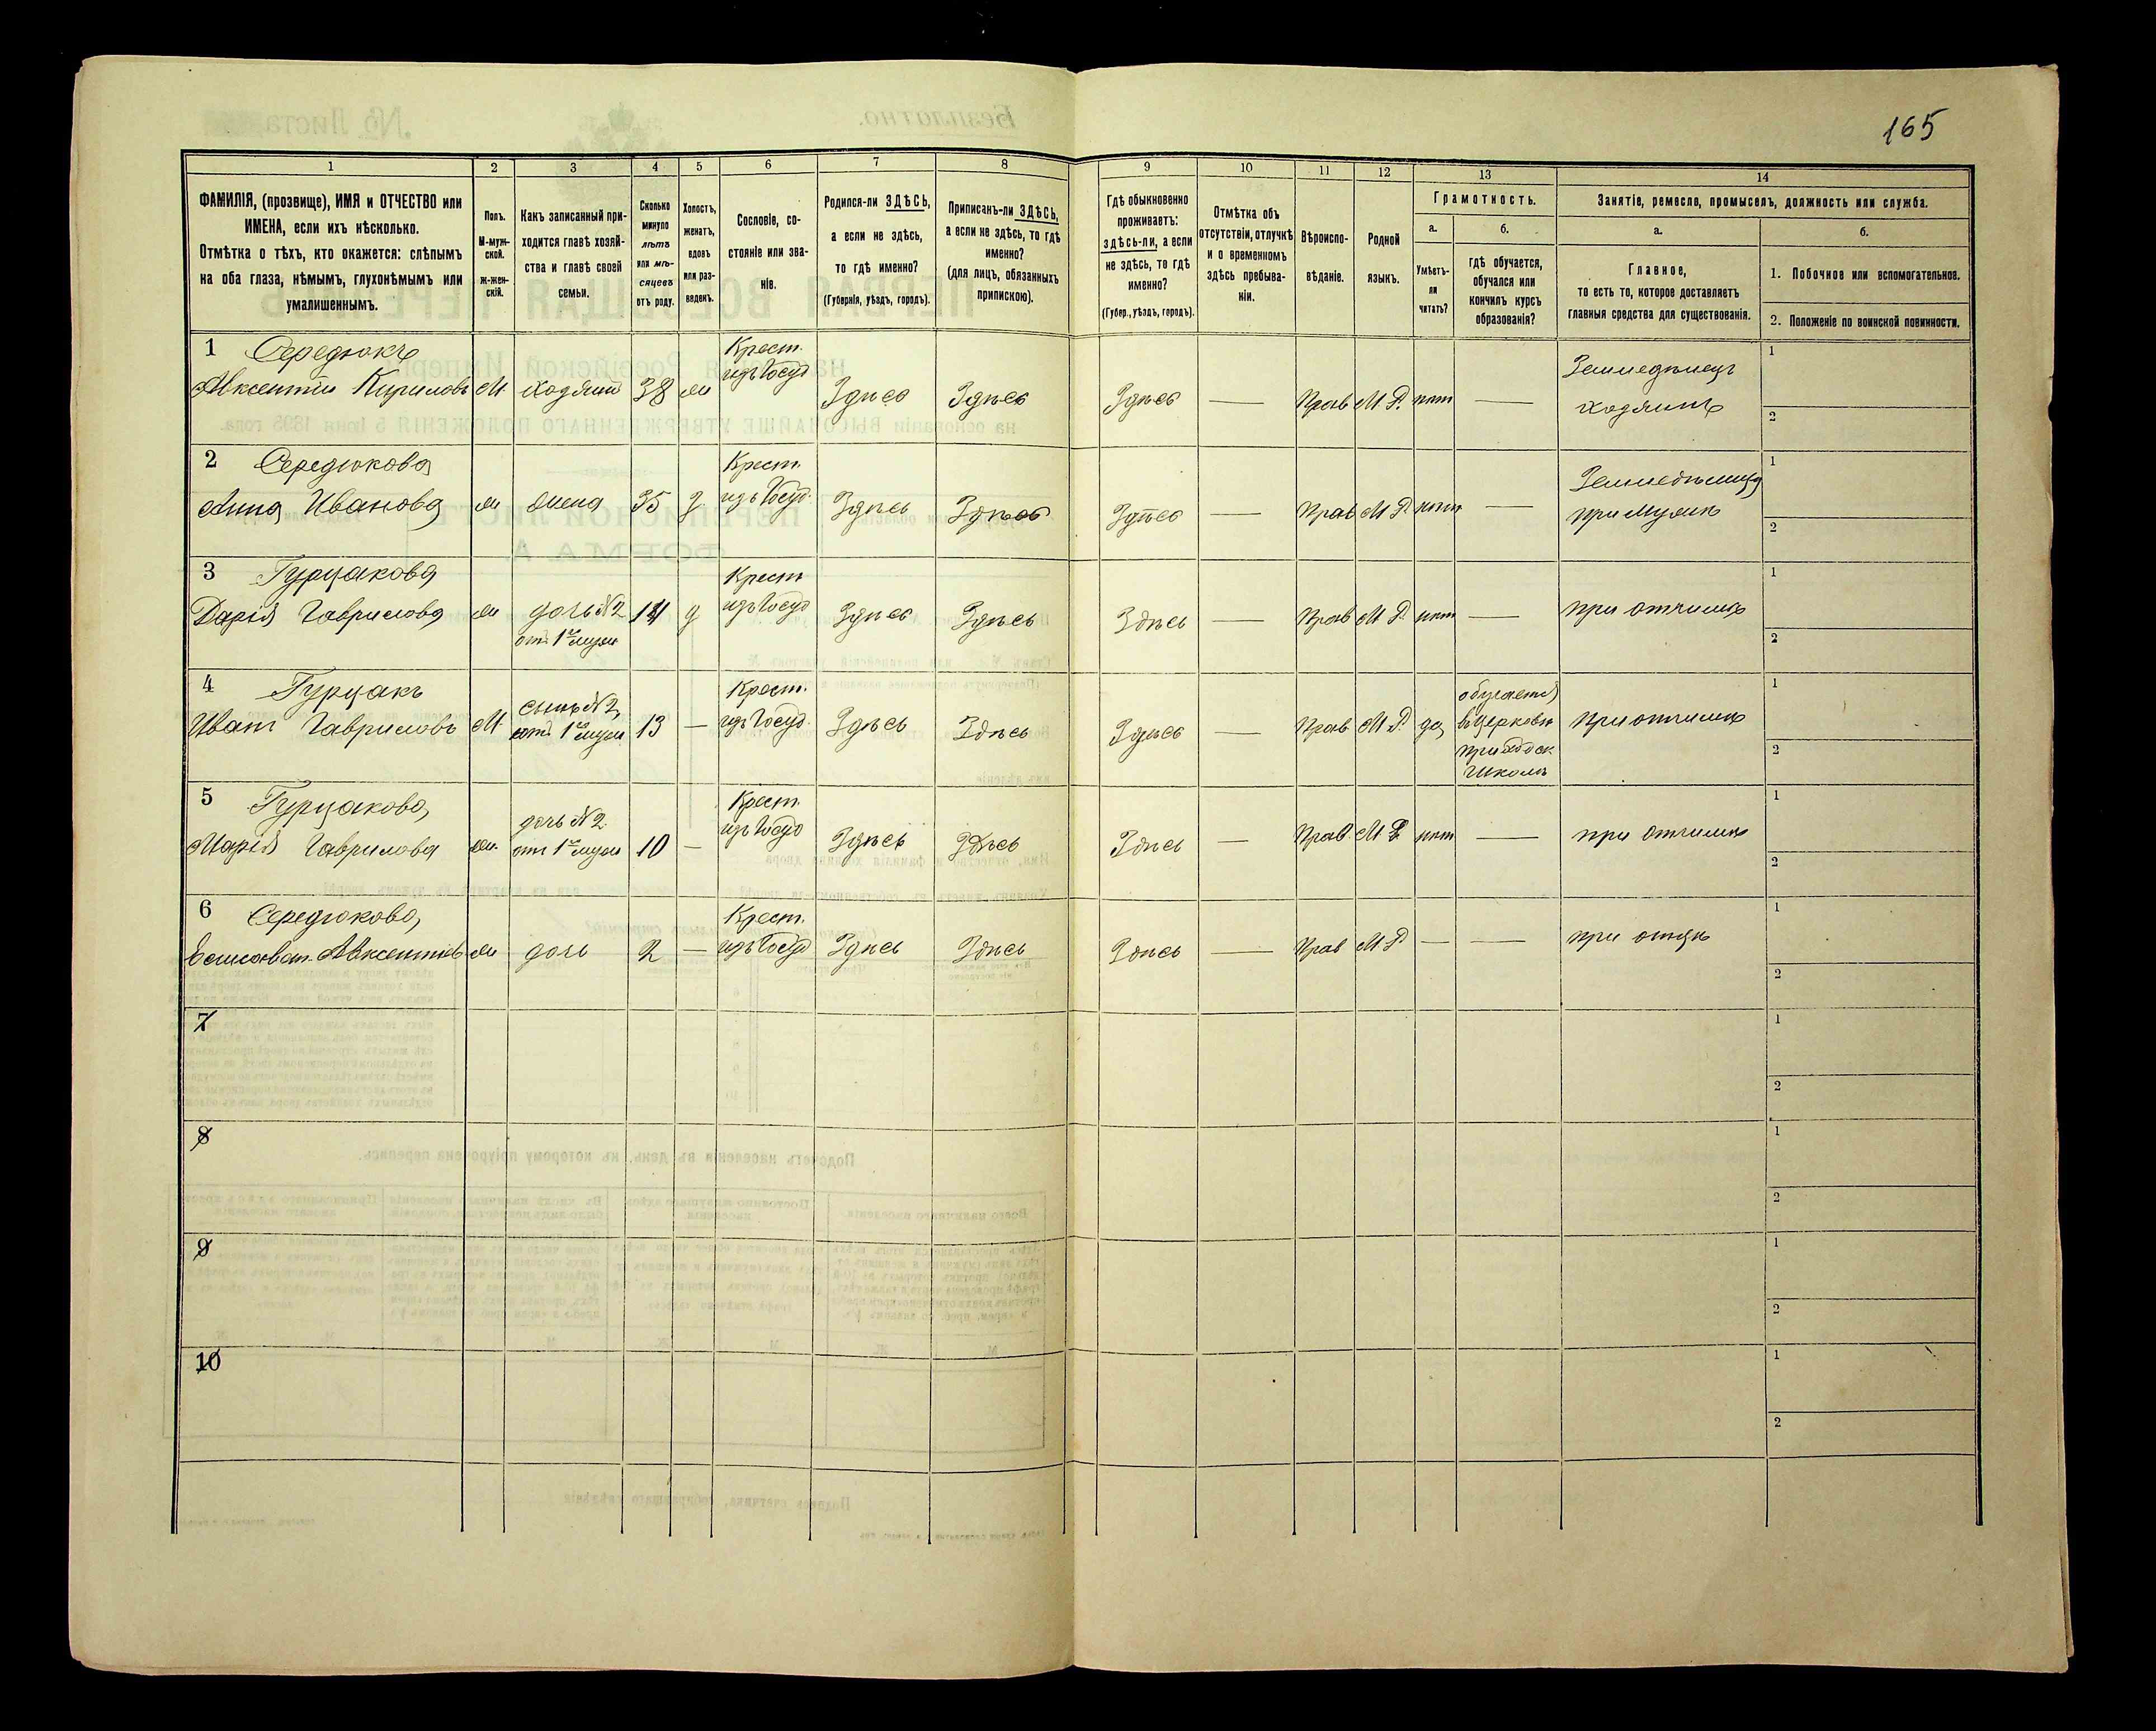 165
1 2 3 4 5 6 7 8 9 10 11 12 13 14
ФАМИЛІЯ, (прозвище), ИМЯ и ОТЧЕСТВО или
ИМЕНА, если ихъ нѣсколько.
Отмѣтка о тѣхъ, кто окажется: слѣпымъ
на оба глаза, нѣмымъ, глухонѣмымъ или
умалишеннымъ.
Полъ.
М-муж-
ской.
ж-жен-
скій.
Какъ записанный при-
ходится главѣ хозяй-
ства и главѣ своей
семьи.
Сколько
минуло
лѣтъ
или мѣ-
сяцевъ
отъ роду.
Холостъ,
женатъ,
вдовъ
или раз-
веденъ.
Сословіе, со-
стояніе или зва-
ніе.
Родился-ли ЗДѢСЬ,
а если не здѣсь,
то гдѣ именно?
(Губернія, уѣздъ, городъ).
Приписанъ-ли ЗДѢСЬ,
а если не здѣсь, то гдѣ
именно?
(для лицъ, обязанныхъ
припискою).
Гдѣ обыкновенно
проживаетъ:
здѣсь-ли, а если
не здѣсь, то гдѣ
именно?
(Губер., уѣздъ, городъ).
Отмѣтка объ
отсутствіи, отлучкѣ
и о временномъ
здѣсь пребыва-
ніи.
Вѣроиспо-
вѣданіе.
Родной
языкъ.
Грамотность.
а.
Умѣетъ-
ли
читать?
б.
Гдѣ обучается,
обучался или
кончилъ курсъ
образованія?
Занятіе, ремесло, промыселъ, должность или служба.
а.
Главное,
то есть то, которое доставляетъ
главныя средства для существованія.
б.
1. Побочное или вспомогательное.
2. Положеніе по воинской повинности.
1 Середюкъ
Авксентій Кириловъ М хозяинъ 38 ж
Крест.
изъ Госуд
Здѣсь Здѣсь Здѣсь — Прав М.Р. нѣт —
Земледѣлецъ
хозяинъ
1
2
2 Середюкова
Анна Иванова ж жена 35 з
Крест.
изъ Госуд.
Здѣсь Здѣсь Здѣсь — Прав М.Р. нѣт —
при мужѣ
1
2
3 Гурцакова
Дарія Гаврилова ж дочь №2
от 1го мужа
14 д
Крест
изъ Госуд
Здѣсь Здѣсь Здѣсь — Прав М.Р. нѣт —
при отчимѣ
1
2
4 Гурцакъ
Иванъ Гавриловъ М. сынъ №2
от 1го мужа
13 —
Крест.
изъ Госуд.
Здѣсь Здѣсь Здѣсь — Прав М.Р. да
обучается
въ церковн
приходск.
школѣ
при отчимѣ
1
2
5 Гурцакова
Марія Гаврилова ж. дочь №2
от 1го мужа
10 —
Крест.
изъ Госуд
Здѣсь Здѣсь Здѣсь — Прав М.Р. нѣт —
при отчимѣ
1
2
6 Середюкова
Елисавет. Авксентіев ж дочь 2 —
Крест.
изъ Госуд
Здѣсь Здѣсь Здѣсь — Прав М.Р. — —
при отцѣ
1
2
7
1
2
8
1
2
9
1
2
10
1
2